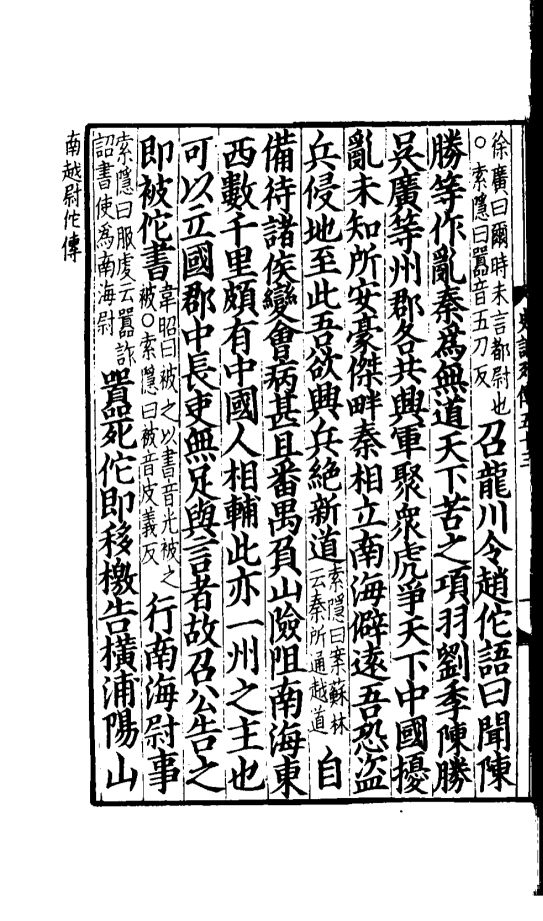 徐廣曰爾時未言都尉也
○索隱曰囂音五刀反
召龍川令趙佗語曰聞陳
勝等作亂秦爲無道天下苦之項羽劉季陳勝
吳廣等州郡各共興軍聚衆虎爭天下中國擾
亂未知所安豪傑畔秦相立南海僻遠吾恐盜
兵侵地至此吾欲興兵絶新道
索隱曰案蘇林
云秦所通越道
自
備待諸侯變會病甚且番禺負山險阻南海東
西數千里頗有中國人相輔此亦一州之主也
可以立國郡中長吏無足與言者故召公告之
即被佗書
韋昭曰被之以書音光被之
被○索隱曰被音皮義反
行南海尉事
索隱曰服虔云囂詐
詔書使爲南海尉
囂死佗即移檄告橫浦陽山
南越尉佗傳